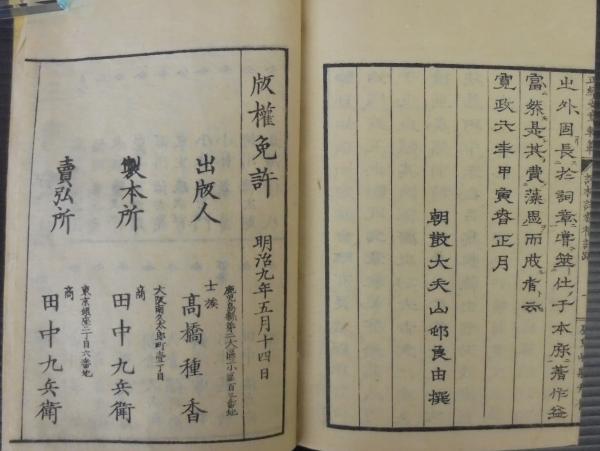 之外因長於詞章嘗筮仕于本府著作益
富然是其費藻思而成者云
寛政六年甲寅春正月
朝散大夫山邨良由撰
版權免許
明治九年五月十四日
出版人
鹿児島縣第二大區小區百三番地
士族
高橋種香
製本所
大阪南久太郎町壹丁目
商
田中九兵衛
賣弘所
東京銀座二丁目六番地
商
田中九兵衛